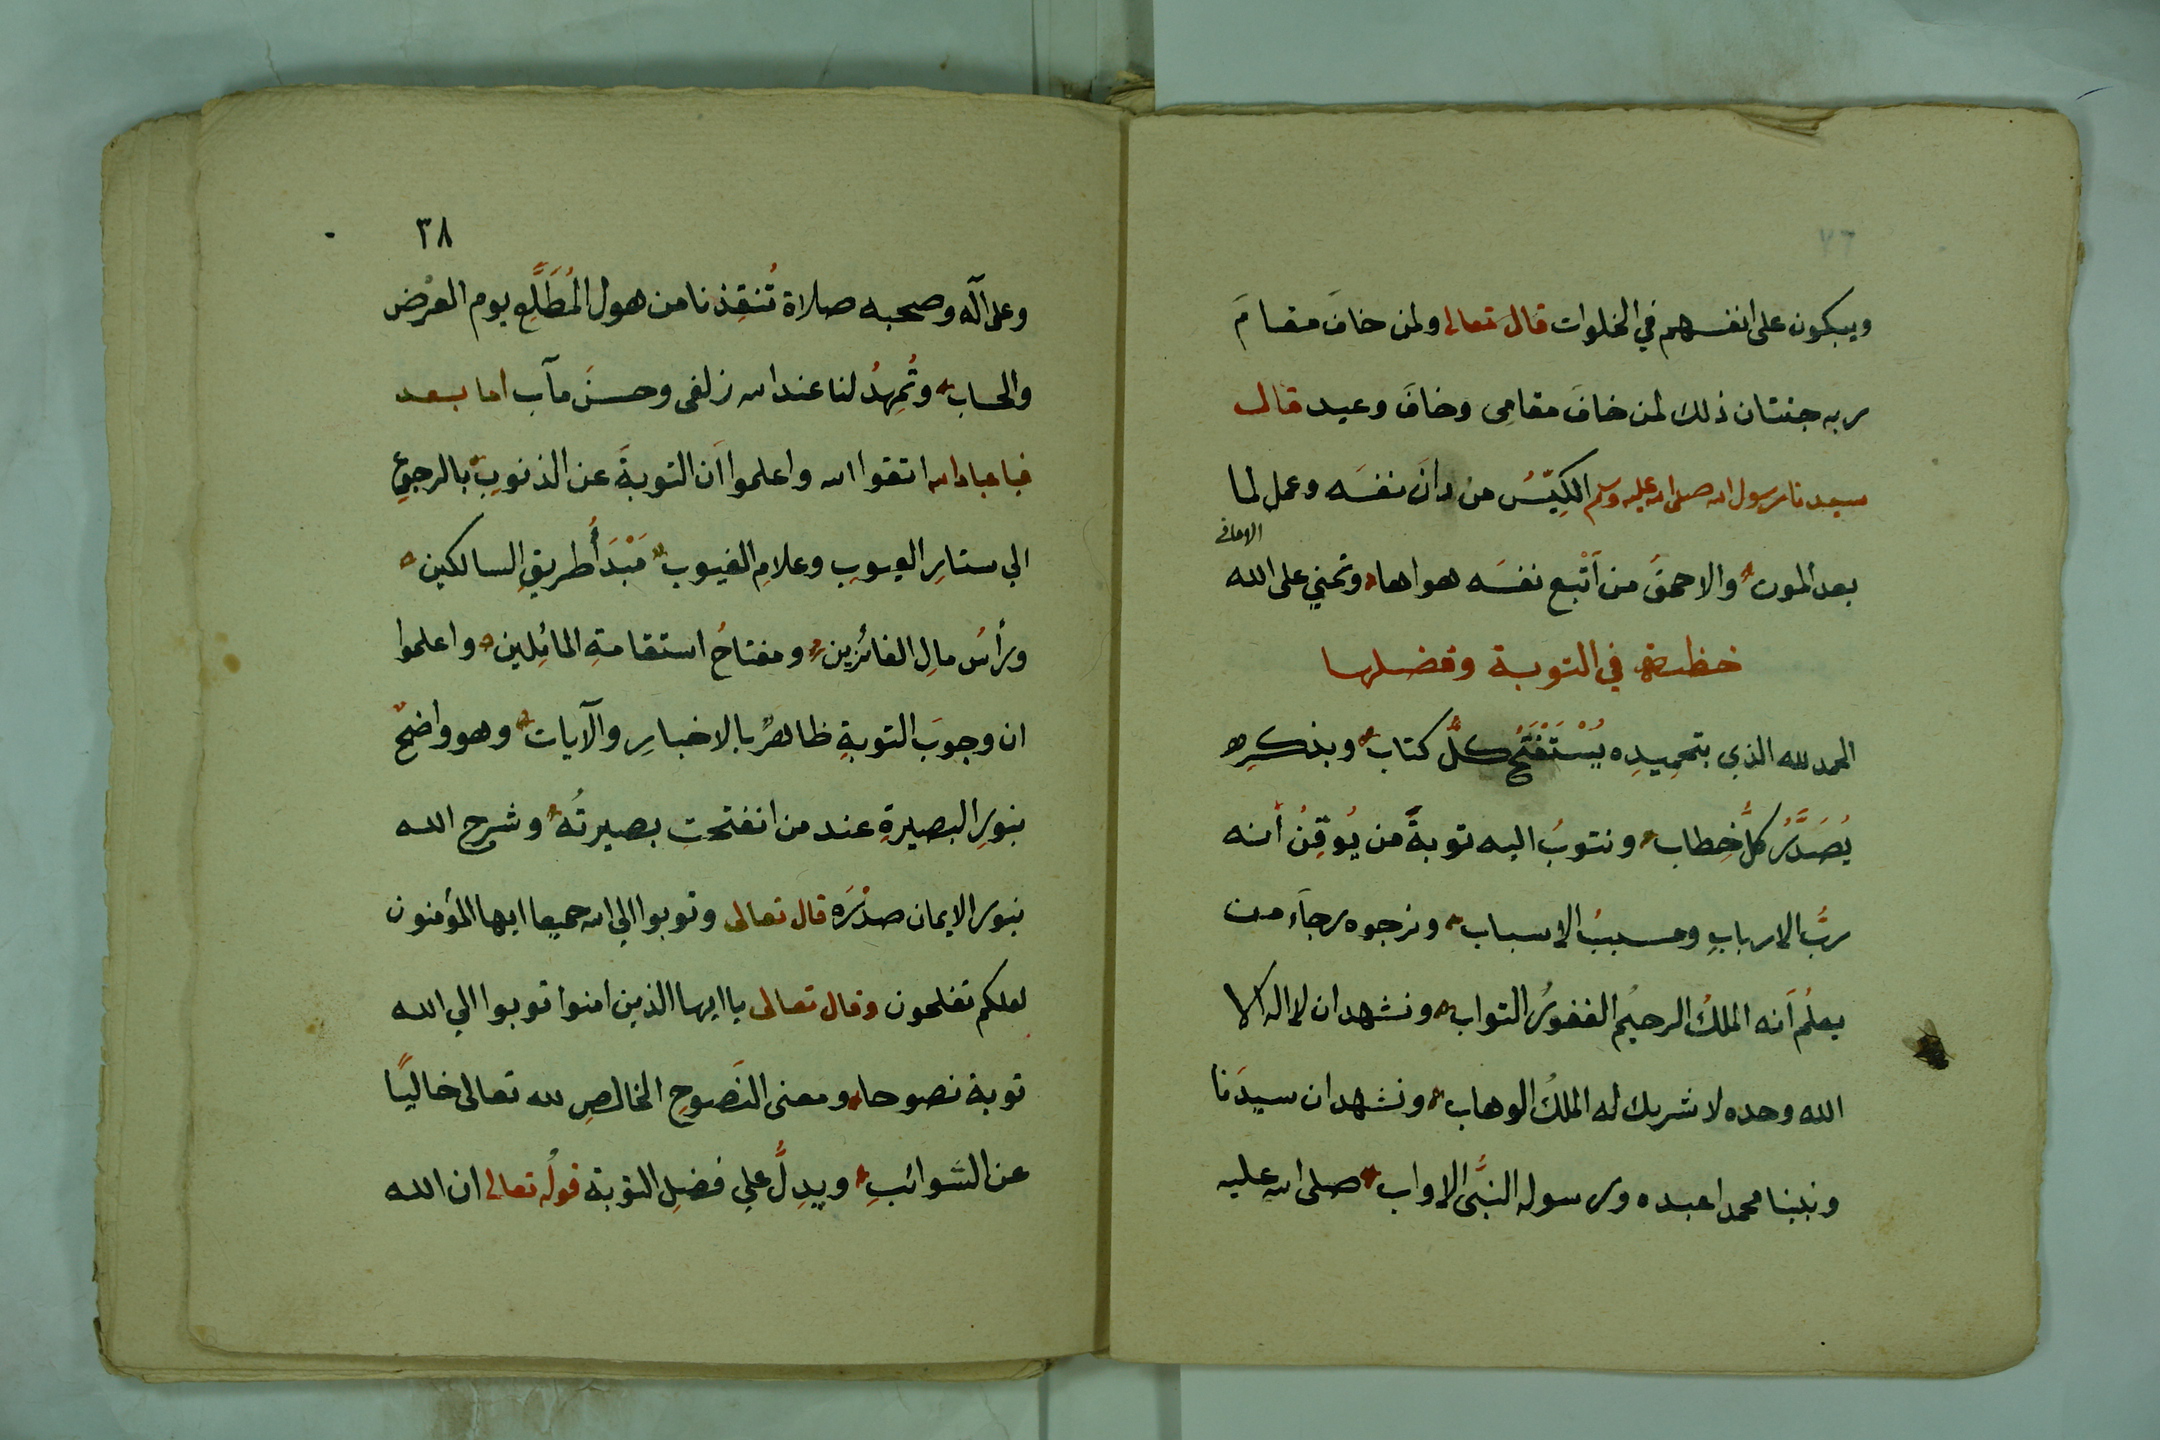 ويبكون على انفسهم في الخلوات قال تعالى ولمن خافَ مقامَ
ربه جنتان ذلك لمن خافَ مقامِى وخافَ وعيد قال
سيدنا رسول الله صلى الله عليه وسلم الكِيّسُ من دانَ نفسَه وعمل لما
بعد الموت والاحمقُ من اَتْبع نفسَه هواها وتمني على الله
الامانى
خطبة في التوبة وفضلها
الحمد لله الذي بتحمِيدِه يُسْتَفْتَحُ كلُّ كتاب وبذكرِه
يُصَدَّرُ كلُّ خِطاب ونتوبُ اليه توبةً من يُوقِنُ أنه
ربُّ الاربابِ ومسببُ الاسباب ونرجوه رجآءَ من
يعلمُ اَنه الملكُ الرحيمُ الغفورُ التواب ونشهد ان لا اله الا
الله وحده لا شريك له الملكُ الوهاب ونشهد ان سيدَنا
ونبينا محمدا عبده ورسوله النبُّى الاواب صلى الله عليه
٣٨
وعلى آله وصحبه صلاة تُنقِذنا من هول المُطَلَّعِ يوم العرْض
والحساب وتُمِهدُ لنا عند الله زلفى وحسنَ مآب اما بعد
فيا عباد الله اتقوا الله واعلموا اَن التوبةَ عن الذنوبِ بالرجوعِ
الي ستارِ العيوبِ وعلامِ الغيوب مَبْدَأُ طريقِ السالكين
ورأسُ مالِ الفائزين ومفتاحُ استقامةِ المائِلين واعلموا
ان وجوبَ التوبةِ ظاهرٌ بالاخبارِ والآيات وهو واضحٌ
بنورِ البصيرةِ عند من انفتحت بصيرتُه وشرح الله
بنور الايمان صدْرَه قال تعالى وتوبوا الي الله جميعا ايها المؤمنون
لعلكم تفلحون وقال تعالى يا ايها الذين امنوا توبوا الي الله
توبة نصوحا ومعنى النَصوحِ الخالصِ لله تعالى خاليًا
عن الشَوائبِ ويدِلُّ علي فضلِ التوبة قولُه تعالى ان الله